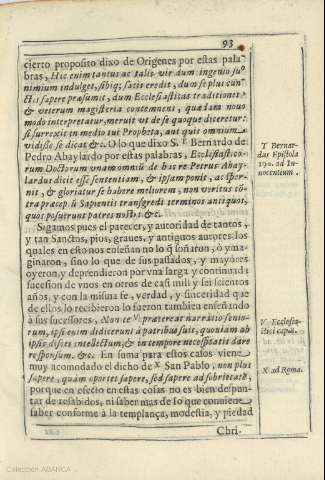 93
cierto proposito dixo de Origenes por estas pala
bras, Hic enim tantus ac talis vir dum ingenio suo
nimium indulget, sibiq; satis credit, dum se plus cun
ctis sapere præsumit, dum Ecclesiasticas traditiones
& veterum magisteria contemnens, quædam nouo
modo interpretatur, meruit vt de se quoque diceretur:
si surrexit in medio tui Propheta, aut quit omnium
vidisse se dicat &c. O lo que dixo S. T Bernardo de
Pedro Abaylardo por estas palabras, Ecclesiastico-
rum Doctorum vnam omnium de hac re Petrus Abay-
lardus dicit esse sententiam, & ipsam ponit, ac sper-
nit, & gloriatur se habere meliorem, non veritus cō-
tra præceptū Sapientis transgredi terminos antiquos,
quos posuerunt patres nostri &c.
T Bernar-
dus Epistola
190. ad In-
nocentium.
Sigamos pues el parecer, y autoridad de tantos,
y tan Sanctos, pios, graues, y antiguos autores los
quales en esto nos enseñan no lo q̄ soñaron, ò yma
ginaron, sino lo que de sus passados, y mayores
oyeron, y deprendieron por vna larga y continuada
sucession de vnos en otros de casi mill y seiscientos
años, y con la misma fe, verdad, y sinceridad que
de ellos lo recibieron lo fueron tambien enseñando
à sus sucessores. Non te V prætereat narratio senio-
rum, ipsi enim didicerunt à patribus suis, quoniam ab
ipsis disces intellectum, & in tempore necessitatis dare
responsum. &c. En suma para estos casos viene
muy acomodado el dicho de X San Pablo, non plus
sapere, quàm oportet sapere, sed sapere ad sobrietatē,
porque en efecto en estas cosas no es bien despun-
tar de resabidos, ni saber mas de lo que conuiene
saber conforme à la templança, modestia, y piedad
V. Ecclesia-
stici cap. 8.
X ad Roma.
Chri-
Colección ABANCA